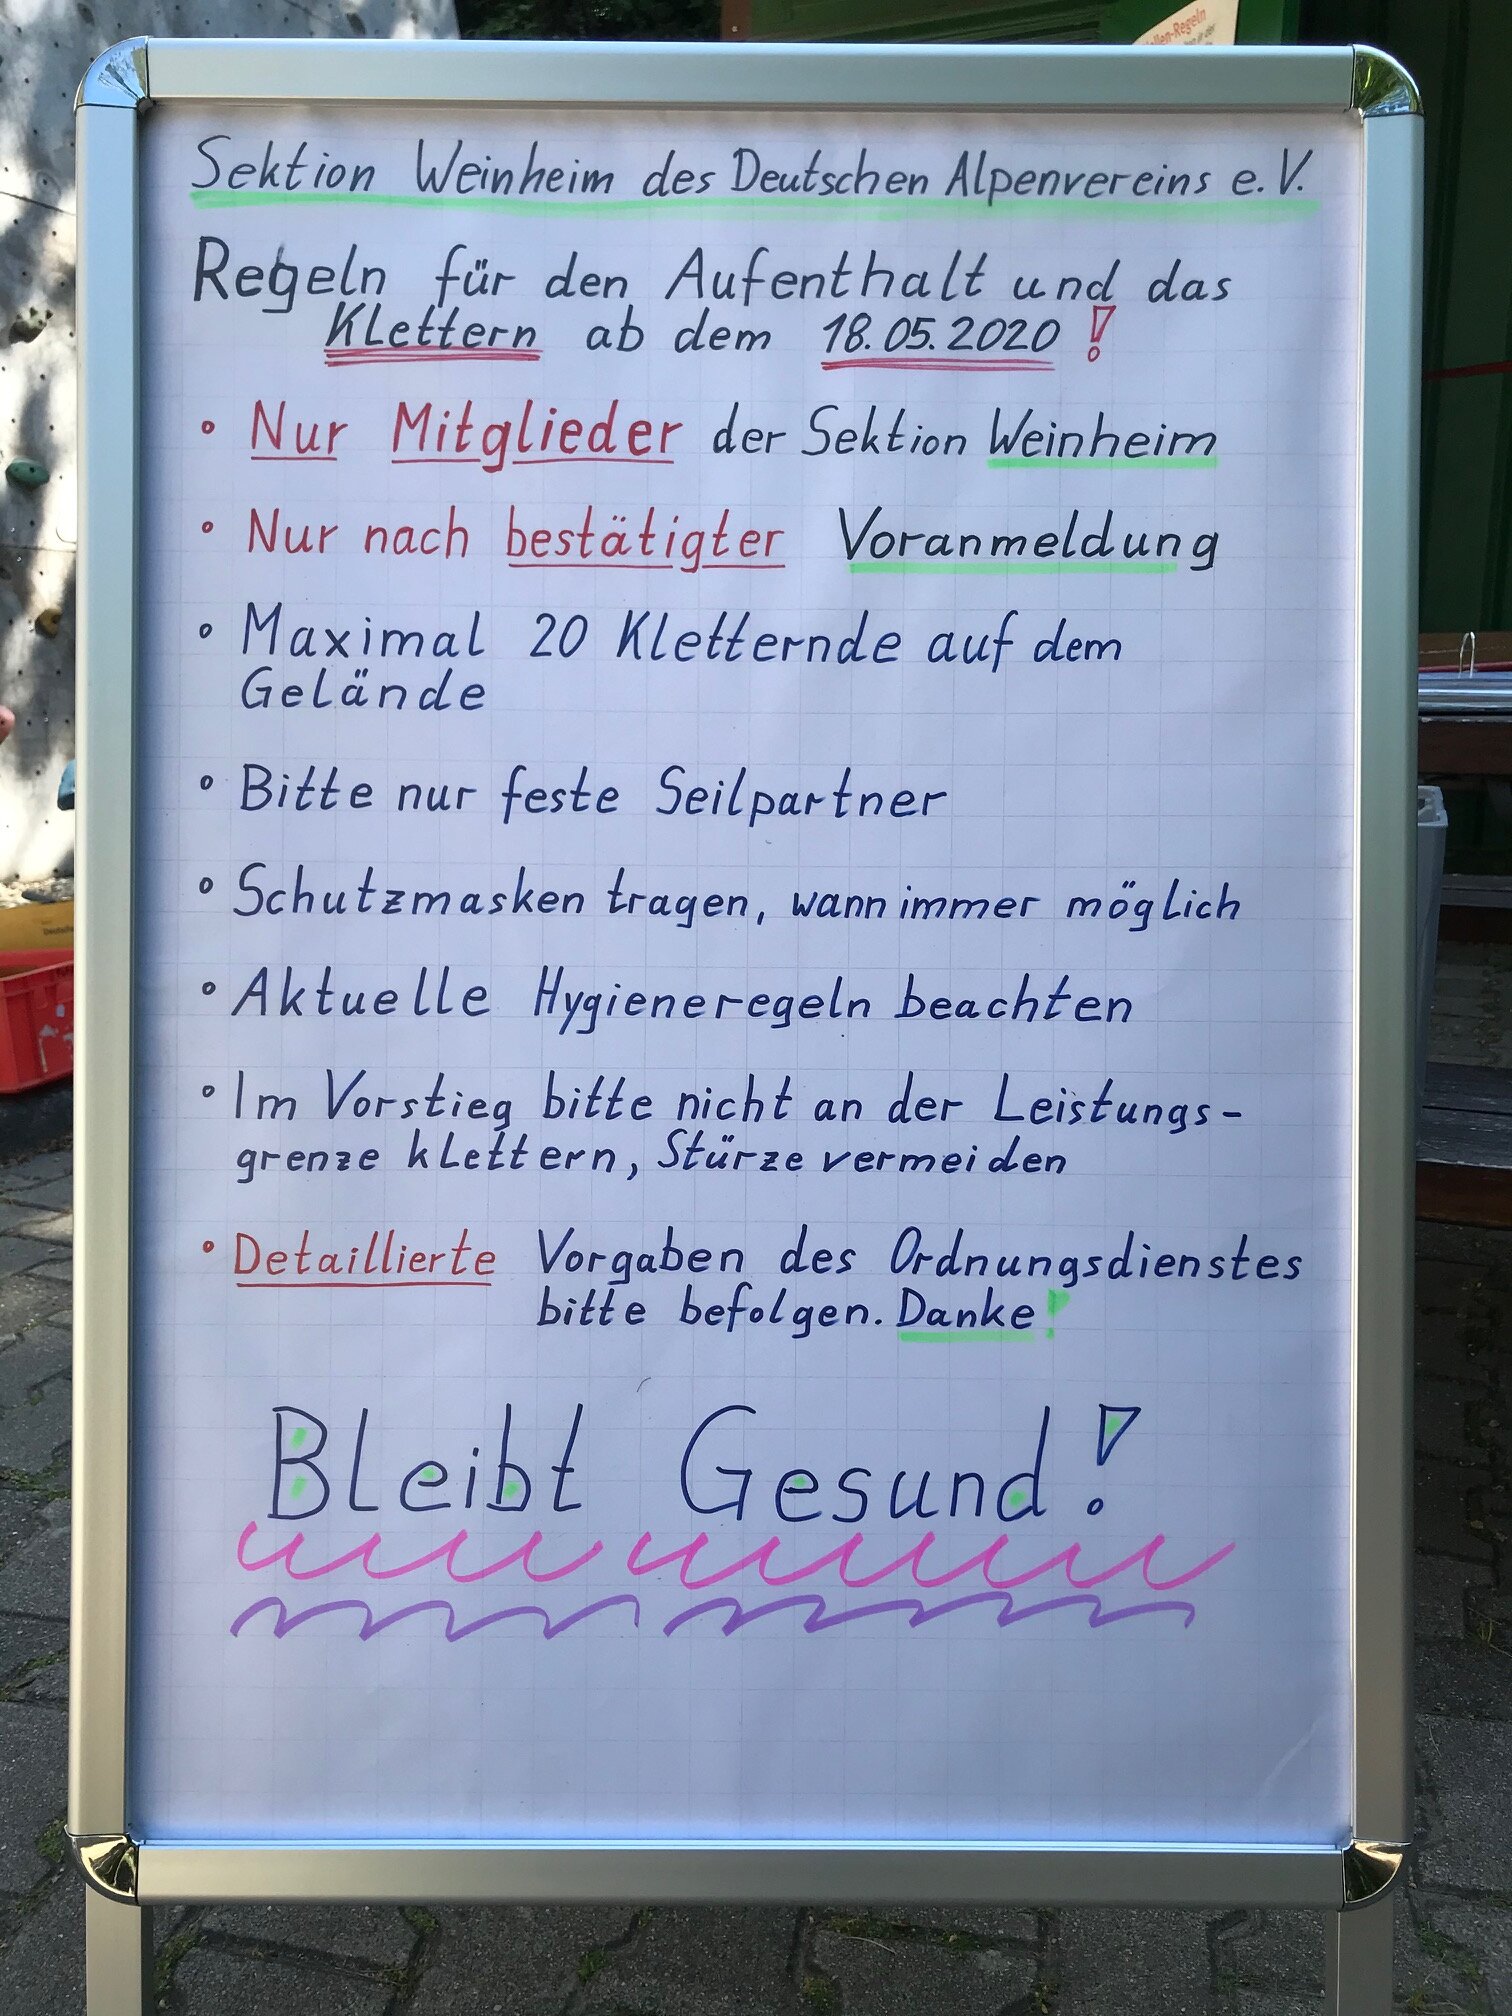 llen-Regeln
Sektion Weinheim des Deutschen Alpenvereins e.V.
Regeln für den Aufenthalt und das
Klettern ab dem 18.05.2020!
• Nur Mitglieder der Sektion Weinheim
• Nur nach bestätigter Voranmeldung
• Maximal 20 Kletternde auf dem
Gelände
• Bitte nur feste Seilpartner
• Schutzmasken tragen, wann immer möglich
• Aktuelle Hygieneregeln beachten
• Im Vorstieg bitte nicht an der Leistungs-
grenze klettern, Stürze vermeiden
• Detaillierte Vorgaben des Ordnungsdienstes
bitte befolgen. Danke!
Bleibt Gesund!